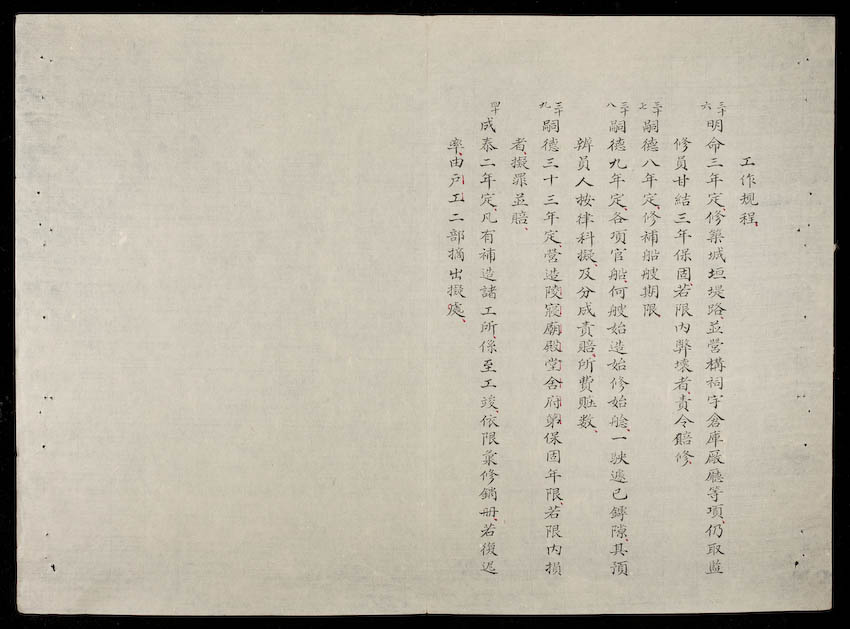 工作規程、
三十六 明命三年定、修築城垣堤路、並營構祠宇倉庫廠廳等項、仍取監
修員甘結三年保固、若限內弊壞者、責令賠修、
三十七 嗣德八年定、修補船艘期限
三十八 嗣德九年定、各項官船、何艘始造始修始舱、一駛遽已罅隙、其預
辨員人按律科擬、及分成責賠、所費賍數、
三十九 嗣德三十三年定、營造陵寢廟殿堂舍府第保固年限、若限內損
者、擬罪並賠、
四十 成泰二年定、凡有補造諸工所、係至工竣、依限彙修銷册、若復遲
率、由戶工二部摘出擬處、